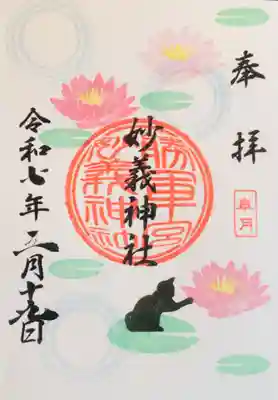 奉拝
皐月
妙義神社
勝軍宮
妙義神社
令和七年五月